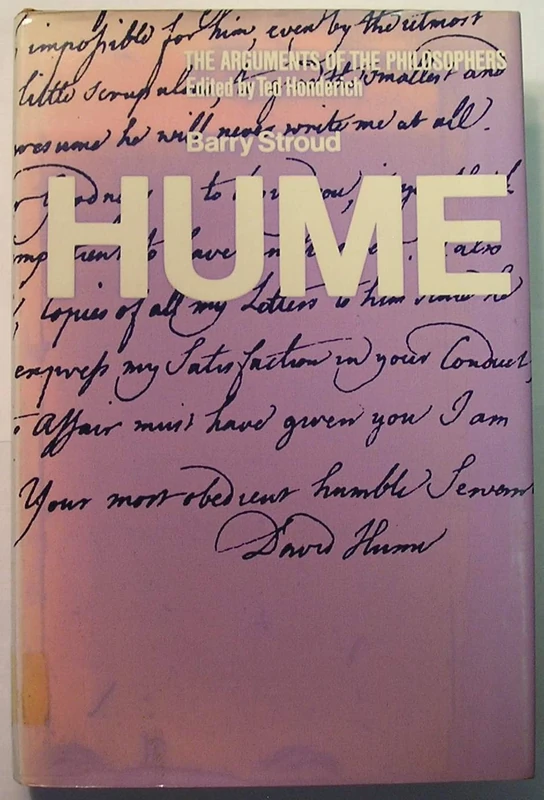 impossible for him, even by the utmost
THE ARGUMENTS OF THE PHILOSOPHERS
little
smallest and
Edited by Ted Honderich
he will never write me at all.
Barry Stroud
to
HUME
to have
also
Copies of all my Letters to him since he
express my Satisfaction in your Conduct,
Affair must have given you I am
Your most obedient humble Servant
David Hume